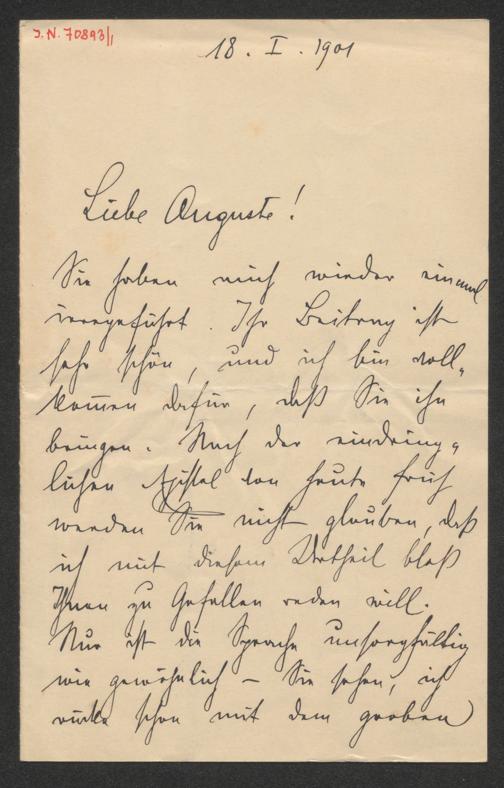 J.N. 70893/1
18. I. 1901
Liebe Auguste!
Sie haben mich wieder einmal
irregeführt. Ihr Beitrag ist
sehr schön, und ich bin voll-
kommen dafür, daß Sie ihn
bringen. Nach der eindring-
lichen Epistel von heute früh
werden Sie nicht glauben, daß
ich mit diesem Urtheil bloß
Ihnen zu Gefallen reden will.
Nur ist die Sprache unsorgfältig
wie gewöhnlich – Sie sehen, ich
rücke schon mit dem groben